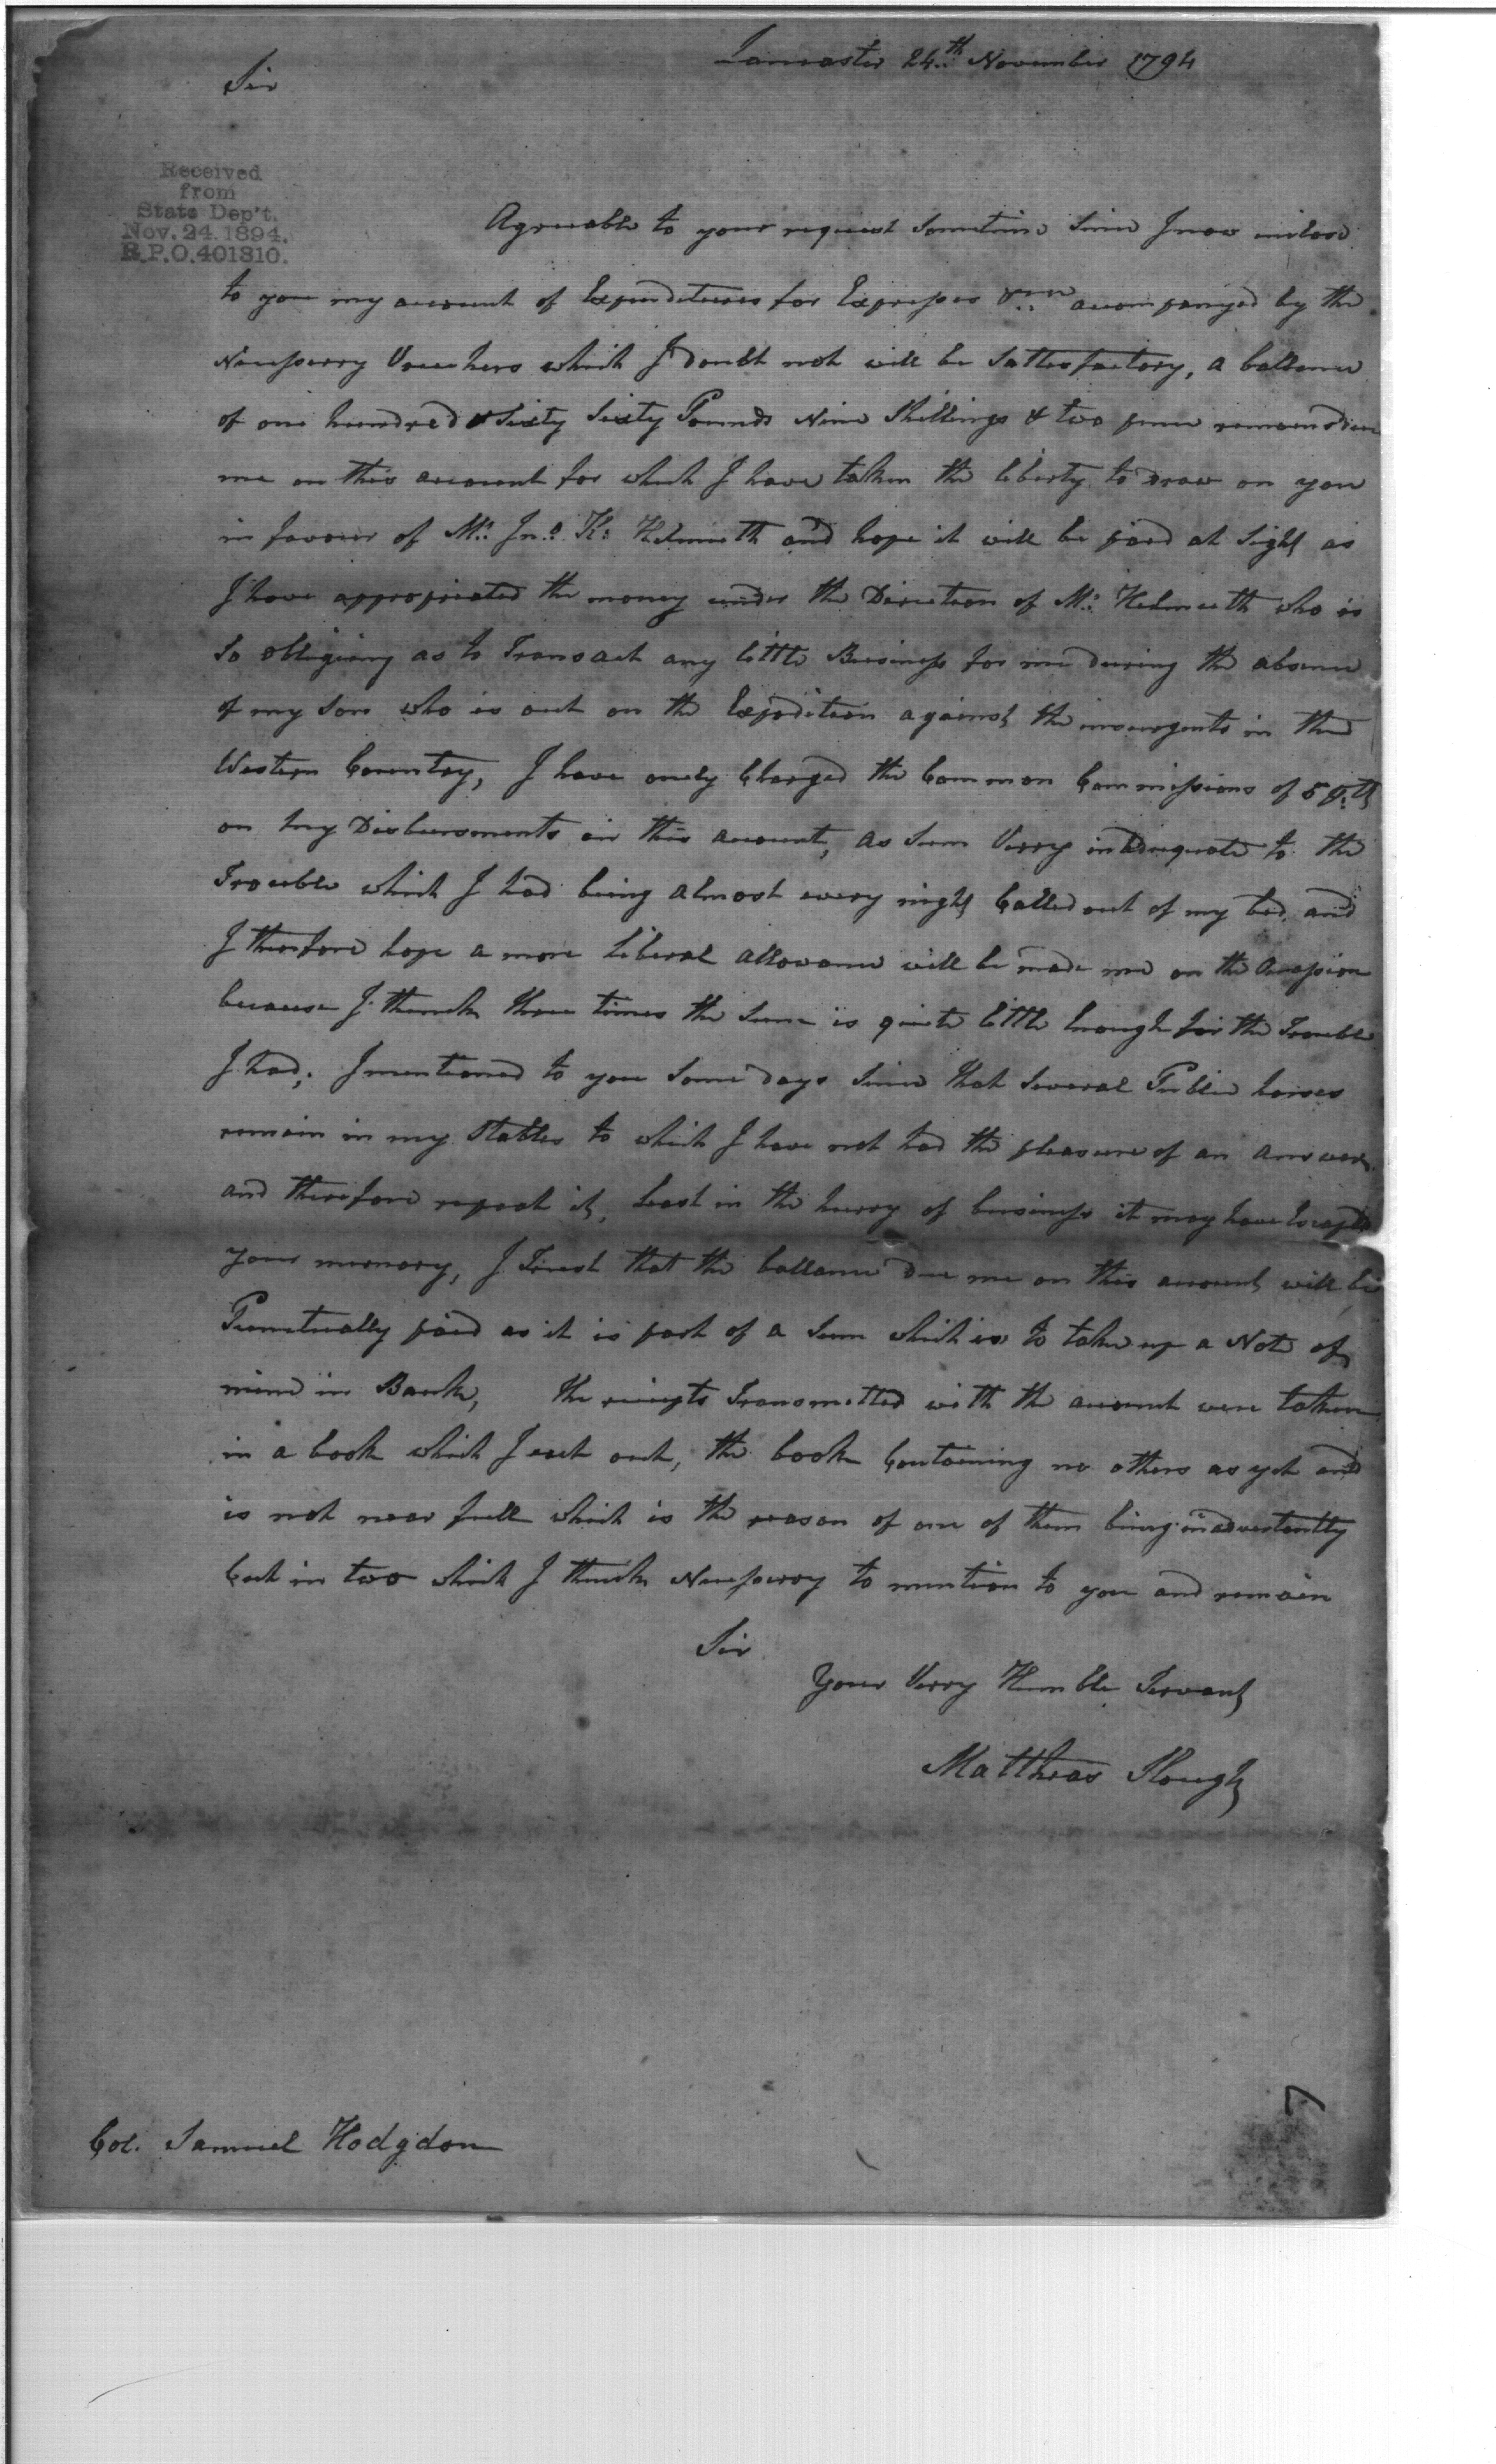 Lancaster 24th November 1794
Sir
Received
from
State Dep't.
Nov. 24. 1894.
R.P.O. 401810.
Agreeable to your request sometime since I now inclose
to you my account of Expenditures for Expresses accompanyed by the
Necessarry Vouchers which I doubt not will be Sattesfactory, a ballance
of one hundred & Sixty Sixty Pounds Nine Shillings & two pence remains due
me on this account for which I have taken the liberty to Draw on you
in favour of Mr. Jno. K. Helmuth and hope it will be paid at Sight as
I have appropriated the money under the Direction of Mr. Helmuth who is
So obligeing as to Transact any little Business for me during the absence
of my Son who is out on the Expedition against the insurgents in the
Western Country, I have onely Charged the Common Commissions of 5
on my Disbursments in this account, as Sum Verry inadequate to the
Trouble which I had being almost every night Called out of my bed, and
I therefore hope a more liberal allowance will be made me on the Occassion
because I think three times the Sum is quite little Enough for the Trouble
I had; I mentioned to you Some days Since that Several Public horses
remain in my Stables to which I have not had the pleasure of an answer
and therefore repeat it, least in the hurry of business it may have Escaped
your memory, I Trust that the ballance due me on this account will be
Punctually paid as it is part of a Sum which is to take up a Note of
mine in Bank, the reciepts Transmitted with the account were taken
in a book which I cut out, the book Containing no others as yet and
is not near full which is the reason of one of them being inadvertantly
Cut in two which I think Necessarry to mention to you and remain
Sir
Your Verry Humble Servant
Matthias Slough
Col. Samuel Hodgdon
7